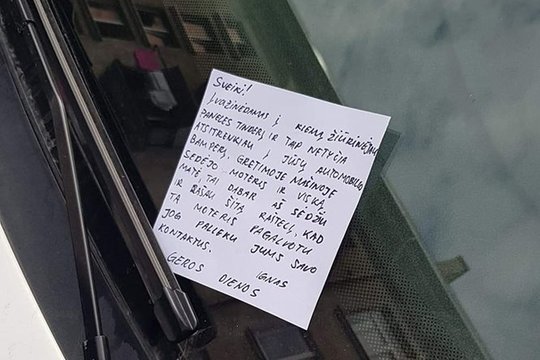 SVEIKI!
ĮVAŽINĖDAMAS Į KIEMĄ ŽIŪRINĖJAU
PANELES TINDERĮ IR TAIP NETYČIA
ATSITRENKIAU Į JŪSŲ AUTOMOBILIO
BAMPERĮ, GRETIMOJE MAŠINOJE
SĖDĖJO MOTERIS IR VISKĄ
MATĖ, TAI DABAR AŠ SĖDŽIU
IR RAŠAU ŠITĄ RAŠTELĮ, KAD
TA MOTERIS PAGALVOTŲ
JOG PALIEKU JUMS SAVO
KONTAKTUS. IGNAS
GEROS DIENOS